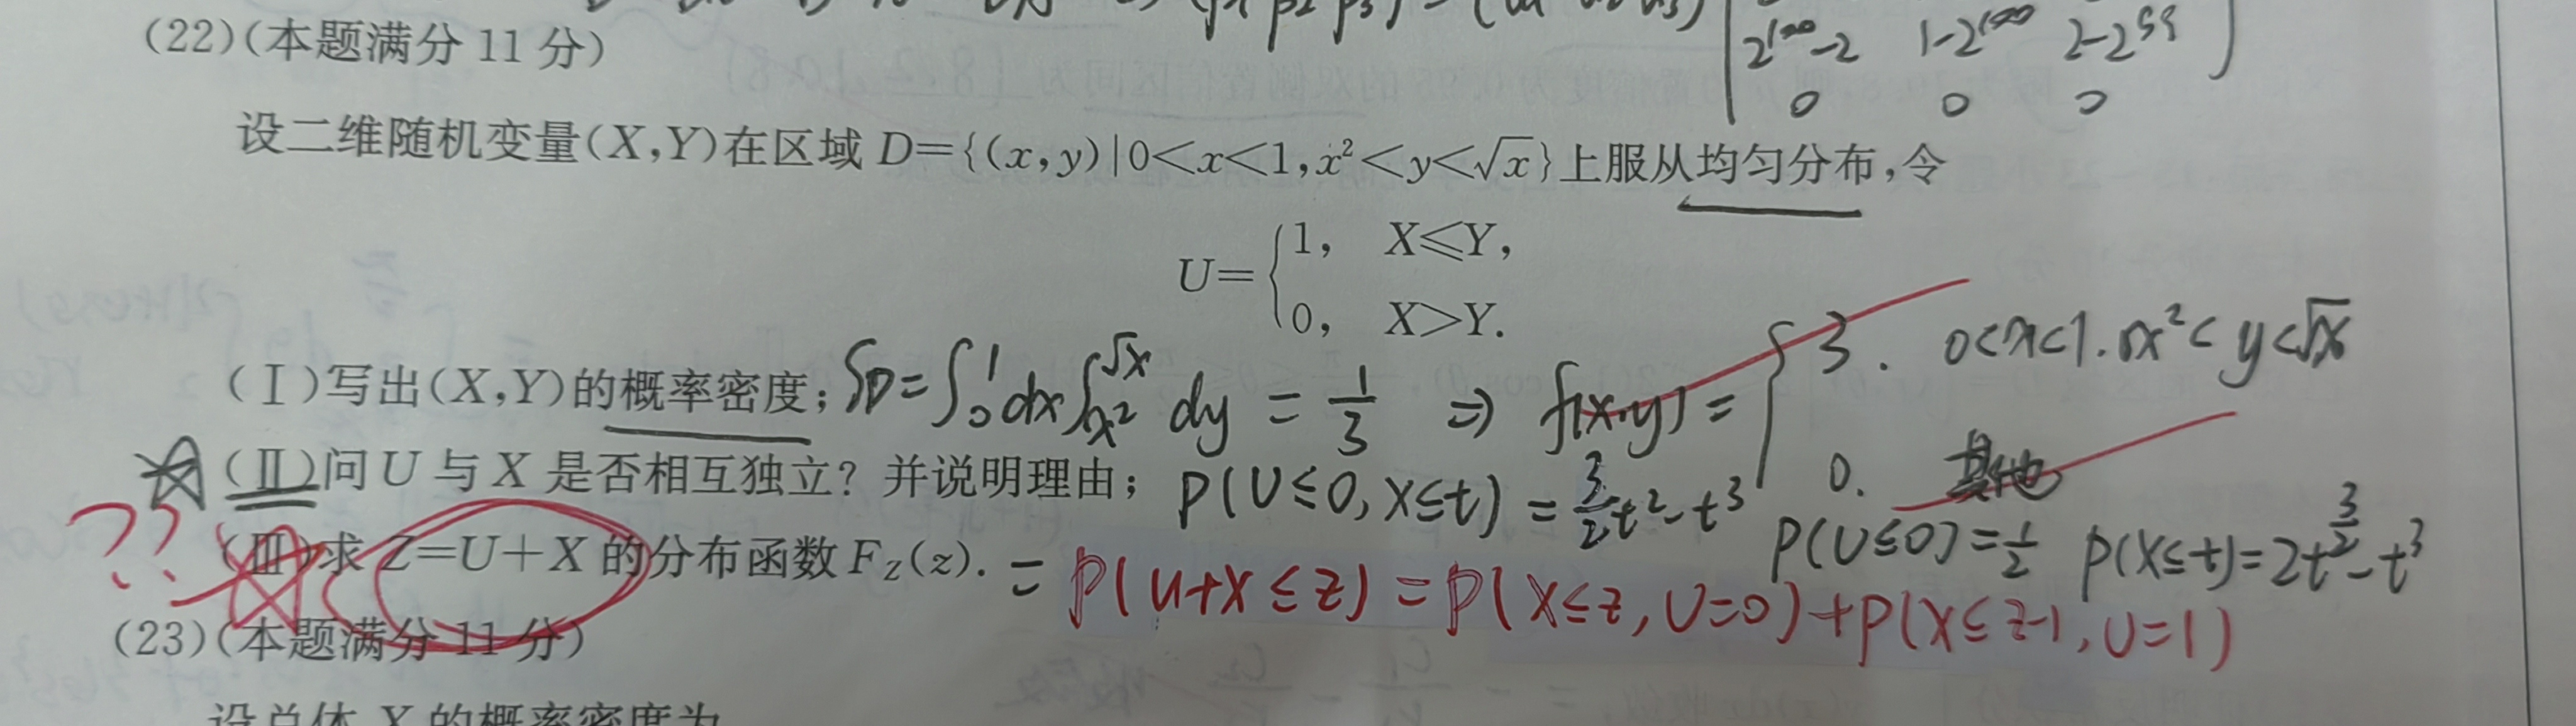 (22)(本题满分 11 分)
2^{100}-2 1-2^{100} 2-2^{99}
0 0 0
设二维随机变量(X,Y)在区域 D={(x,y)|0<x<1,x²<y<√x}上服从均匀分布,令
U={1, X⩽Y,
0, X>Y.
(Ⅰ)写出(X,Y)的概率密度; S_D=∫₀¹dx∫_{x²}^{√x} dy = 1/3 ⇒ f(x,y)={3. 0<x<1. x²<y<√x
0. 其他
☆(Ⅱ)问 U 与 X 是否相互独立? 并说明理由; P(U≤0,X≤t)=3/2t²-t³ P(U≤0)=1/2 P(X≤t)=2t^{3/2}-t³
??☆(Ⅲ)求 Z=U+X 的分布函数 F_Z(z). =P(U+X≤z)=P(X≤z,U=0)+P(X≤z-1,U=1)
(23)(本题满分 11 分)
设总体 X 的概率密度为